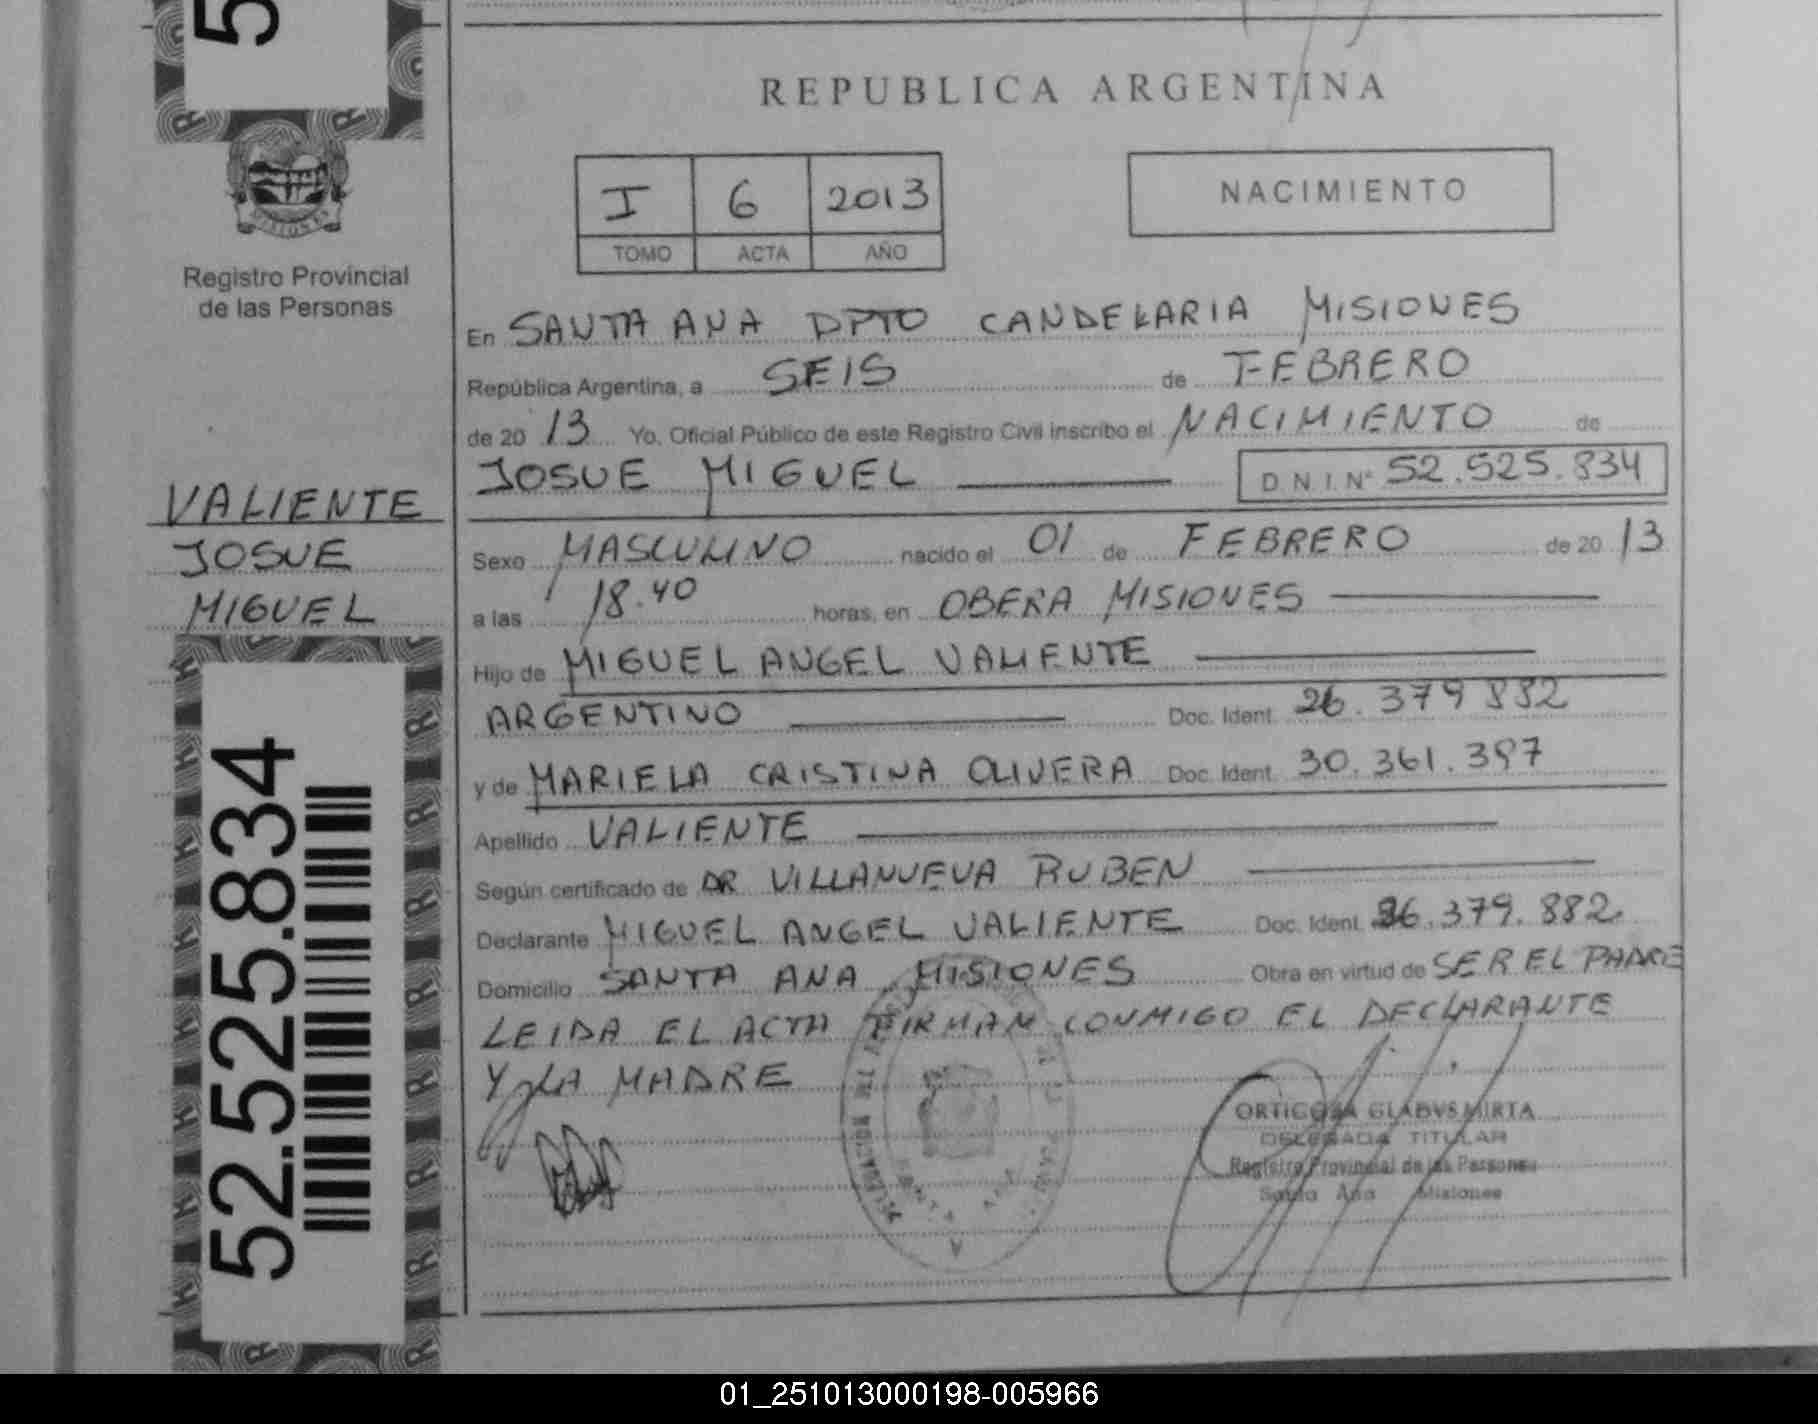 REPUBLICA ARGENTINA
I 6 2013
TOMO ACTA AÑO
NACIMIENTO
Registro Provincial
de las Personas
En SANTA ANA DPTO CANDELARIA MISIONES
República Argentina, a SEIS de FEBRERO
de 20 13 Yo. Oficial Público de este Registro Civil inscribo el NACIMIENTO de
JOSUE MIGUEL D.N.I. N° 52.525.834
VALIENTE
JOSUE
MIGUEL
Sexo MASCULINO nacido el 01 de FEBRERO de 20 13
a las 18.40 horas, en OBERA MISIONES
Hijo de MIGUEL ANGEL VALIENTE
ARGENTINO Doc. Ident. 26.379 882
y de MARIELA CRISTINA OLIVERA Doc. Ident. 30.361.397
Apellido VALIENTE
Según certificado de DR VILLANUEVA RUBEN
Declarante MIGUEL ANGEL VALIENTE Doc. Ident. 26.379.882
Domicilio SANTA ANA MISIONES Obra en virtud de SER EL PADRE
LEIDA EL ACTA FIRMAN CONMIGO EL DECLARANTE
Y LA MADRE
52.525.834
ORTIGOZA GLADYS MIRTA
DELEGADA TITULAR
Registro Provincial de las Personas
Santa Ana Misiones
01_251013000198-005966